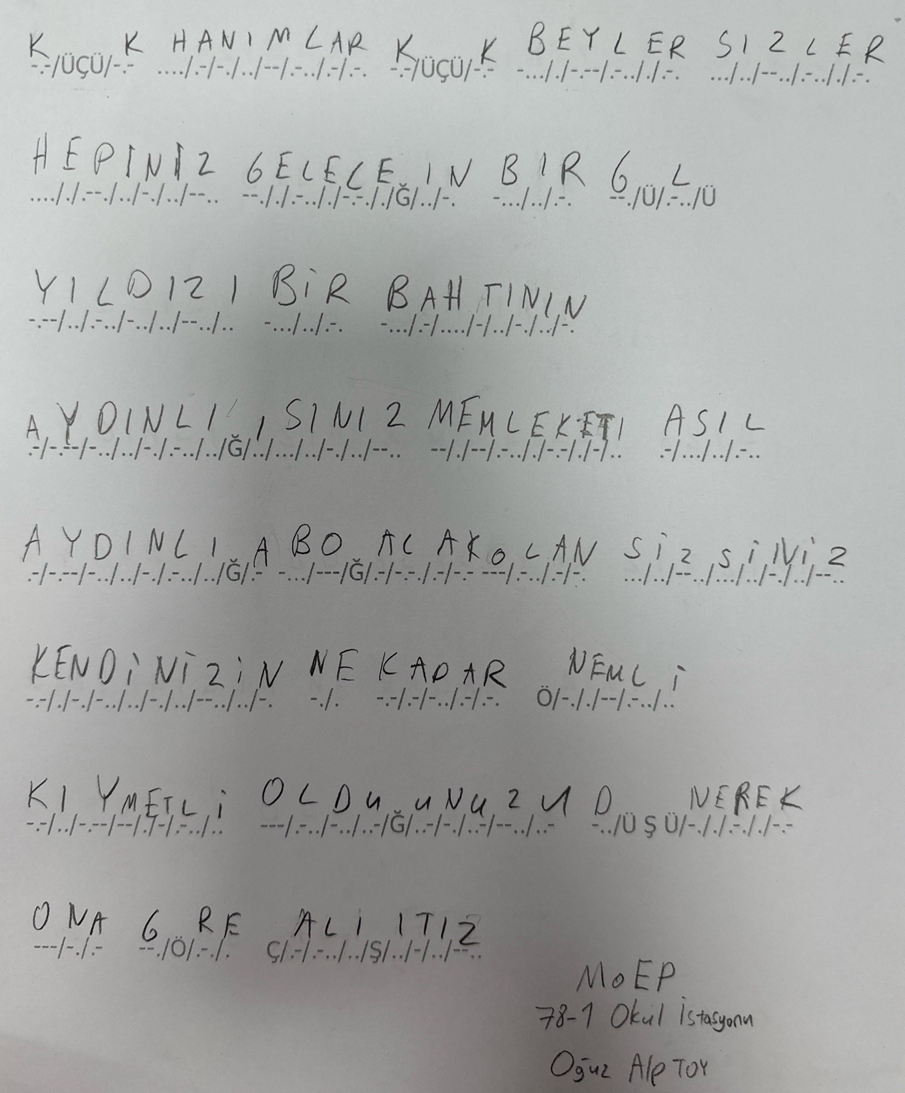 K K HANIMLAR K K BEYLER SIZLER
-.-/ÜÇÜ/-.- ..../.-/-./../--/.-../.-/.-. -.-/ÜÇÜ/-.- -..././-.--/.-.././.-. .../../--../.-.././.-.
HEPINIZ GELECE IN BIR G L
...././.--./../-./../--.. --././.-.././-.-././Ğ/../-. -.../../.-. --./Ü/.-../Ü
YILDIZI BiR BAHTININ
-.--/../.-../-../../--../.. -.../../.-. -.../.-/..../-/../-./../-.
AYDINLI ISINIZ MEMLEKETI ASIL
.-/-.--/-../../-./.-../../Ğ/../.../../-./../--.. --/./--/.-.././-.-/./-/.. .-/.../../.-..
AYDINLI A BO ACAKOLAN SiZSiNiZ
.-/-.--/-../../-./.-../../Ğ/.- -.../---/Ğ/.-/-.-./.-/-.- ---/.-../.-/-. .../../--../.../../-./../--..
KENDiNiZiN NE KADAR NEMLi
-.-/./-./-../../-./../--../../-. -./. -.-/.-/-../.-/.-. Ö/-././--/.-../..
KIYMETLi OLDU UNUZU D NEREK
-.-/../-.--/--/./-/.-../.. ---/.-../-../..-/Ğ/..-/-./..-/--../..- -../Ü Ş Ü/-././.-././-.-
ONA G RE ALI ITIZ
---/-./.- --./Ö/.-./. Ç/.-/.-../../Ş/../-/../--..
MoEP
78-1 Okul İstasyonu
Oğuz Alp TOY